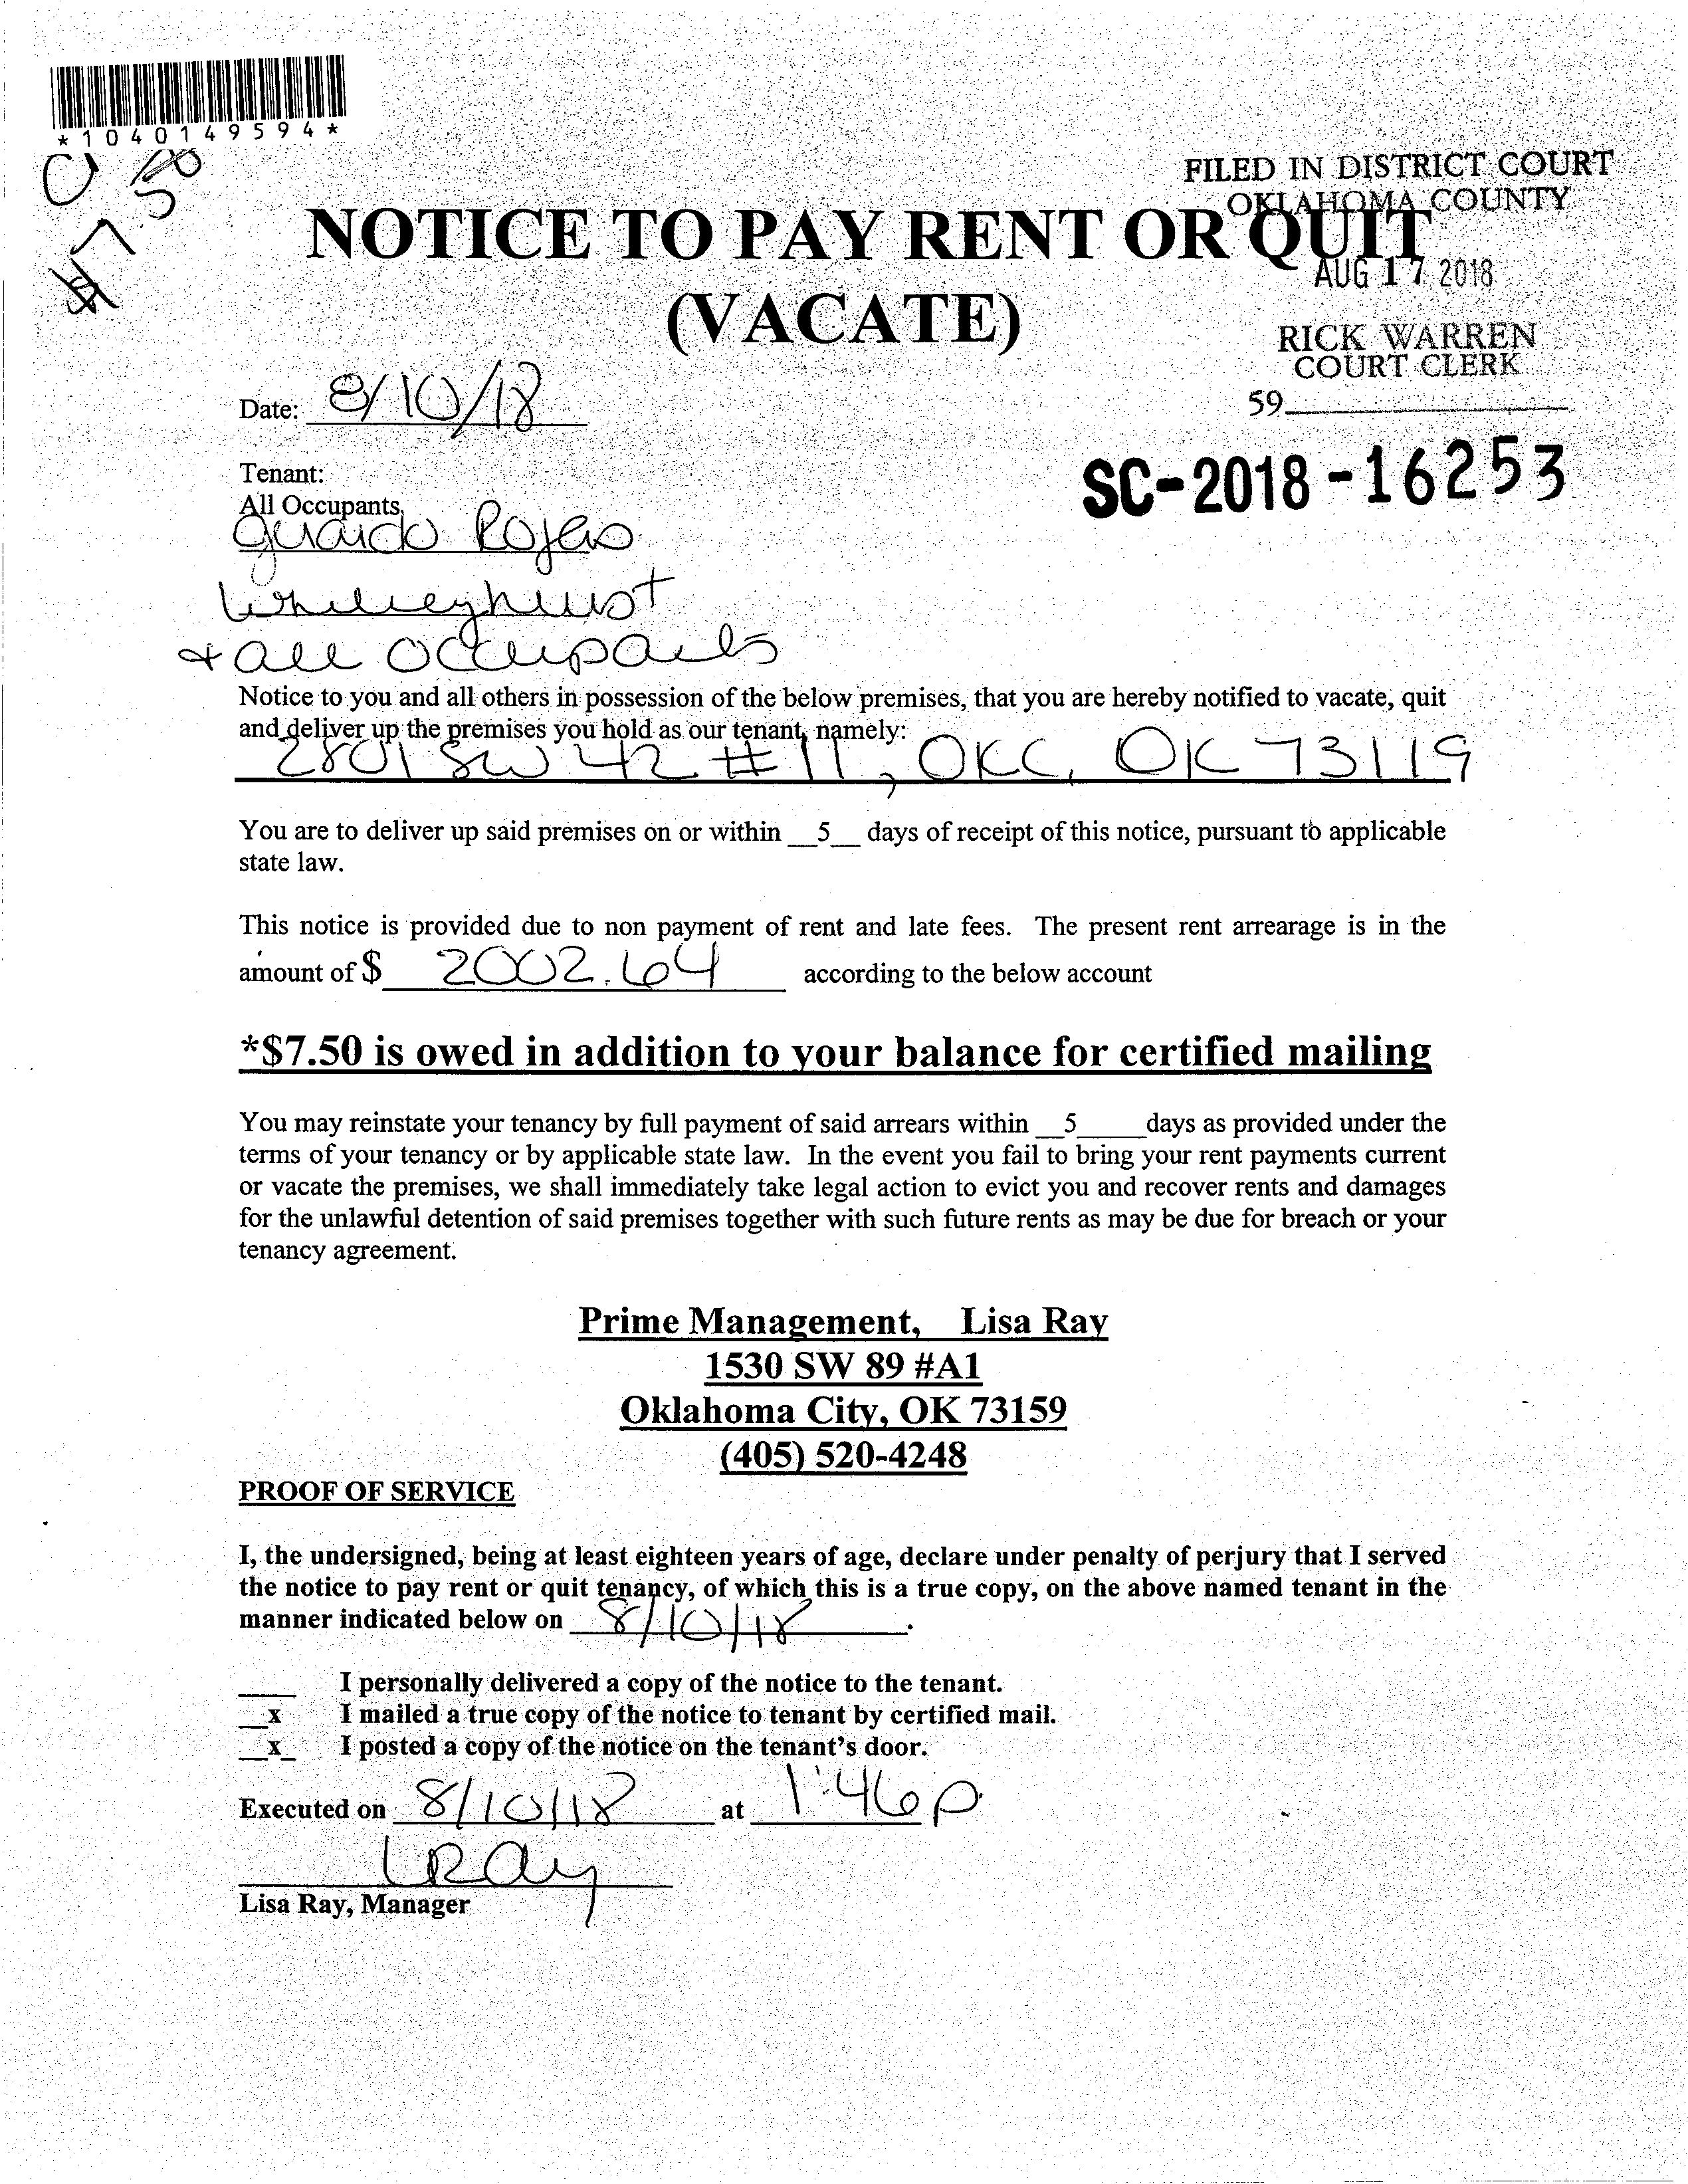 *1040149594*
FILED IN DISTRICT COURT
OKLAHOMA COUNTY
NOTICE TO PAY RENT OR QUIT
AUG 17 2018
(VACATE)
RICK WARREN
COURT CLERK
Date: 8/10/18
59
SC-2018-16253
Tenant:
All Occupants,
Rojas
+ all occupants
Notice to you and all others in possession of the below premises, that you are hereby notified to vacate, quit
and deliver up the premises you hold as our tenant, namely:
2801 SW 42 #11, OKC, OK 73119
You are to deliver up said premises on or within __5__ days of receipt of this notice, pursuant to applicable
state law.
This notice is provided due to non payment of rent and late fees. The present rent arrearage is in the
amount of $ 2002.64 according to the below account
*$7.50 is owed in addition to your balance for certified mailing
You may reinstate your tenancy by full payment of said arrears within __5____ days as provided under the
terms of your tenancy or by applicable state law. In the event you fail to bring your rent payments current
or vacate the premises, we shall immediately take legal action to evict you and recover rents and damages
for the unlawful detention of said premises together with such future rents as may be due for breach or your
tenancy agreement.
Prime Management, Lisa Ray
1530 SW 89 #A1
Oklahoma City, OK 73159
(405) 520-4248
PROOF OF SERVICE
I, the undersigned, being at least eighteen years of age, declare under penalty of perjury that I served
the notice to pay rent or quit tenancy, of which this is a true copy, on the above named tenant in the
manner indicated below on 8/10/18.
____ I personally delivered a copy of the notice to the tenant.
__x I mailed a true copy of the notice to tenant by certified mail.
__x_ I posted a copy of the notice on the tenant's door.
Executed on 8/10/18 at 1:46p
LRay
Lisa Ray, Manager